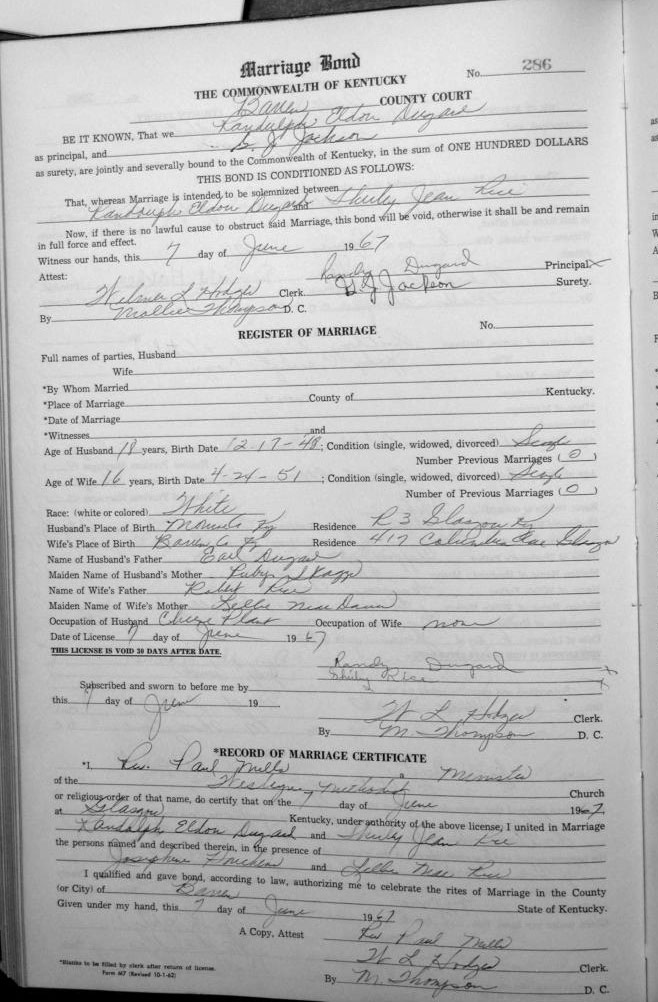 Marriage Bond
No. 286
THE COMMONWEALTH OF KENTUCKY
Barren COUNTY COURT
BE IT KNOWN, That we Randolph Eldon Dugard
as principal, and G. J. Jackson
as surety, are jointly and severally bound to the Commonwealth of Kentucky, in the sum of ONE HUNDRED DOLLARS
THIS BOND IS CONDITIONED AS FOLLOWS:
That, whereas Marriage is intended to be solemnized between
Randolph Eldon Dugard and Shirley Jean Rice
Now, if there is no lawful cause to obstruct said Marriage, this bond will be void, otherwise it shall be and remain
in full force and effect.
Witness our hands, this 7 day of June 1967
Attest: Randy Dugard Principal X
Wilma L Hodges Clerk. G J Jackson Surety.
By Mollie Thompson D. C.
REGISTER OF MARRIAGE No.
Full names of parties, Husband
Wife
*By Whom Married
*Place of Marriage County of Kentucky.
*Date of Marriage
*Witnesses and
Age of Husband 18 years, Birth Date 12-17-48; Condition (single, widowed, divorced) Single
Number Previous Marriages (0)
Age of Wife 16 years, Birth Date 4-24-51; Condition (single, widowed, divorced) Single
Number of Previous Marriages (0)
Race: (white or colored) White
Husband's Place of Birth Ky Residence R 3 Glasgow Ky
Wife's Place of Birth Barren Co Ky Residence 417 Columbia Ave Glasgow
Name of Husband's Father Earl Dugard
Maiden Name of Husband's Mother Ruby Skaggs
Name of Wife's Father Robert Rice
Maiden Name of Wife's Mother Lillie Mae Davis
Occupation of Husband Cheese Plant Occupation of Wife none
Date of License 7 day of June 1967
THIS LICENSE IS VOID 30 DAYS AFTER DATE.
Randy Dugard
Subscribed and sworn to before me by Shirley Rice X
this 7 day of June 19
W L Hodges Clerk.
By M. Thompson D. C.
*RECORD OF MARRIAGE CERTIFICATE
*I, Rev. Paul Mills a Minister
of the Wesleyan Methodist Church
or religious order of that name, do certify that on the 7 day of June 1967
at Glasgow Kentucky, under authority of the above license, I united in Marriage
Randolph Eldon Dugard and Shirley Jean Rice
the persons named and described therein, in the presence of
Josephine and Lillie Mae Rice
I qualified and gave bond, according to law, authorizing me to celebrate the rites of Marriage in the County
(or City) of Barren State of Kentucky.
Given under my hand, this 7 day of June 1967
Rev Paul Mills
A Copy, Attest W L Hodges Clerk.
By M. Thompson D. C.
*Blanks to be filled by clerk after return of license.
Form M7 (Revised 10-1-62)